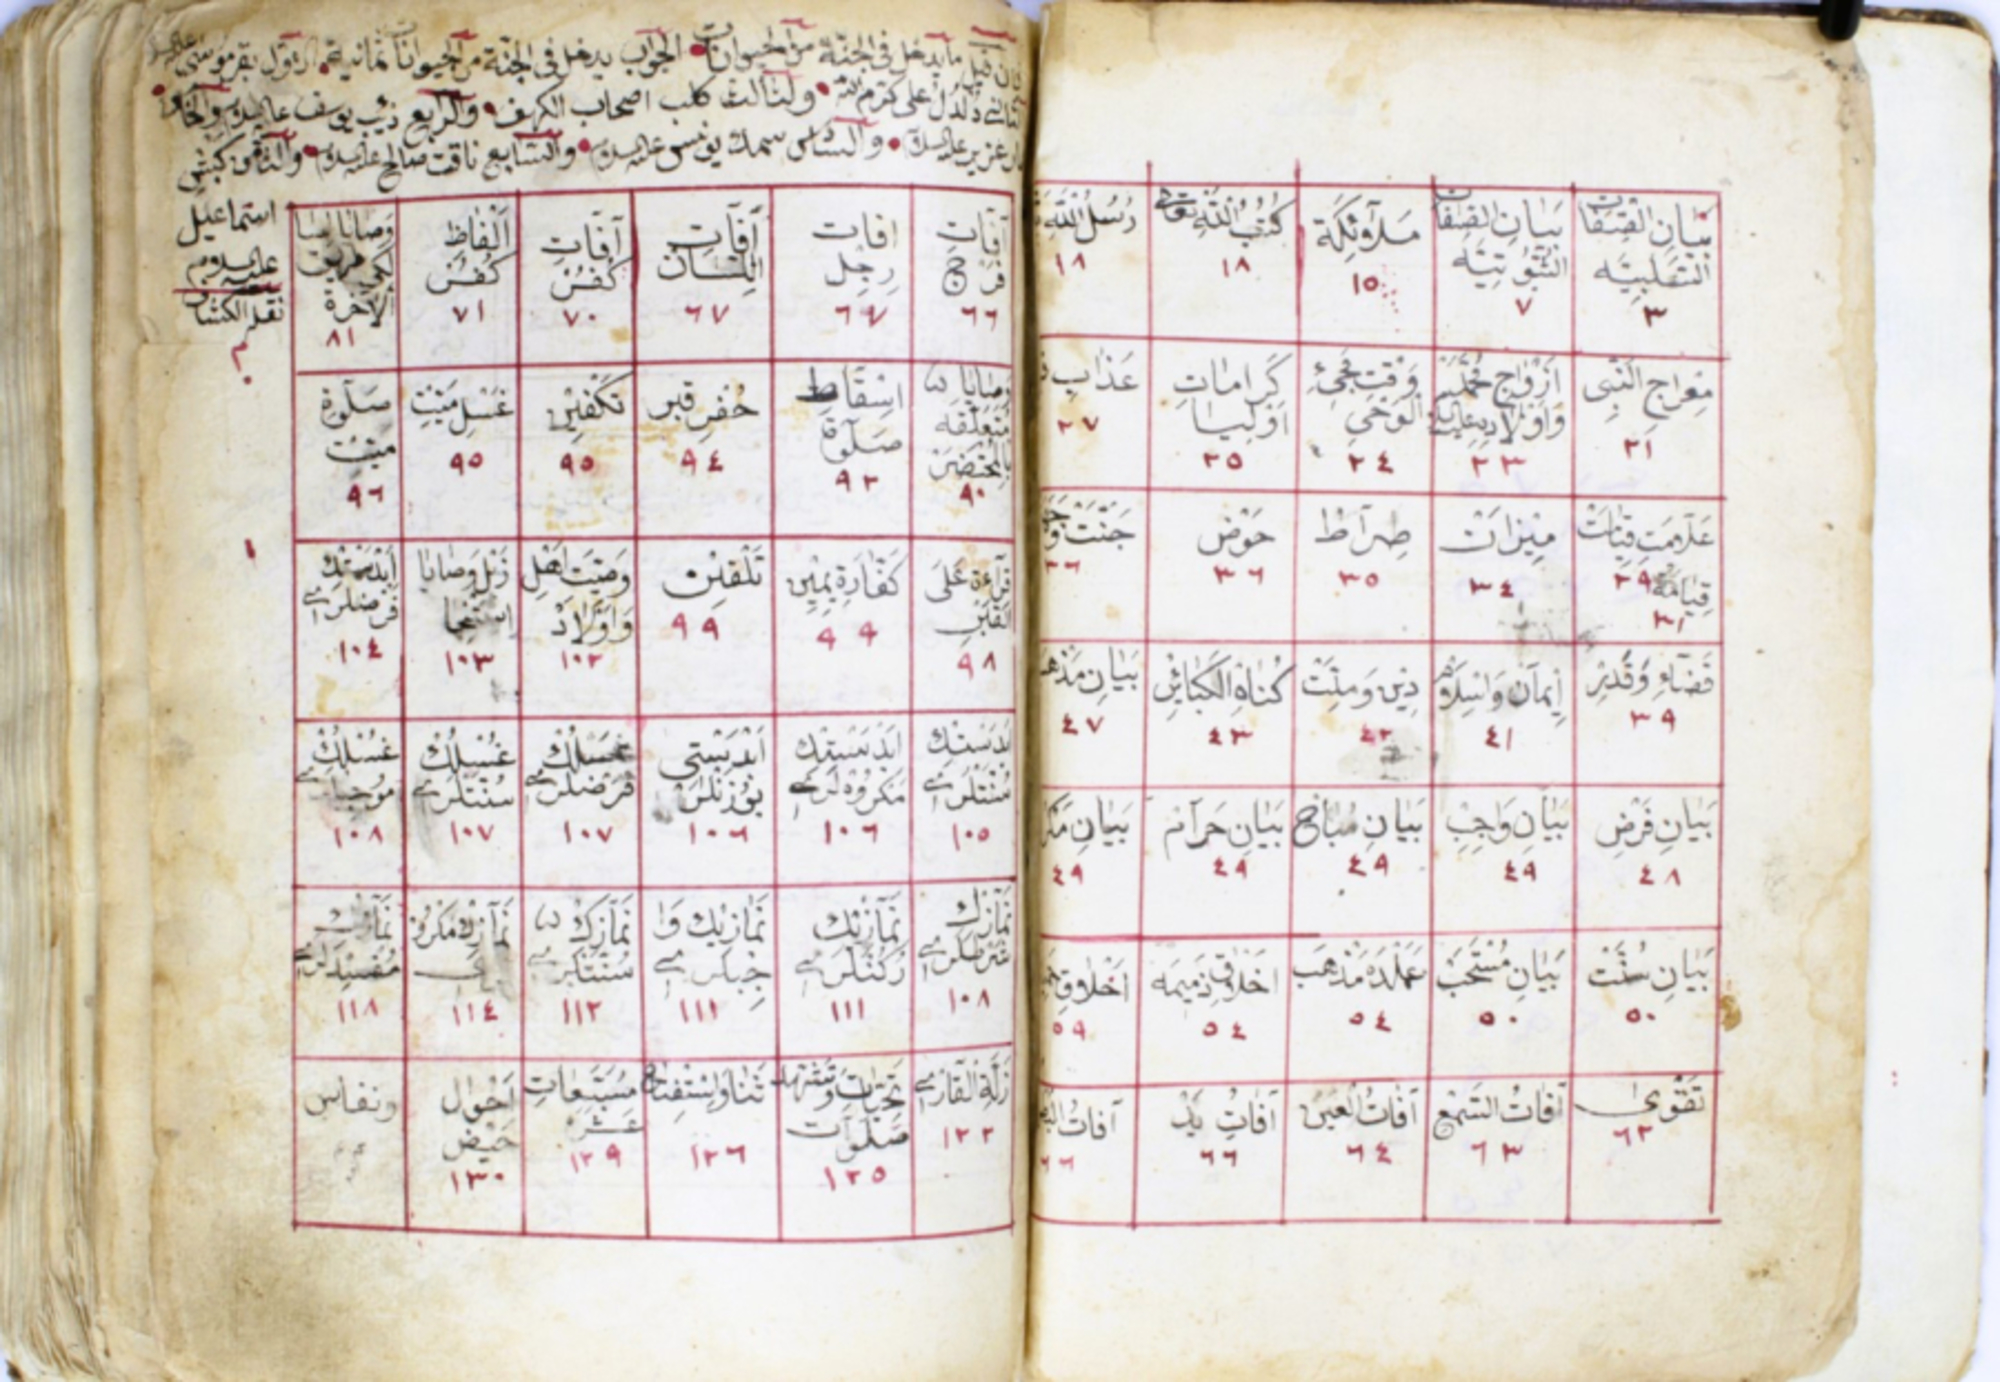 بيان الصفات التقلبيه ٣
بيان الصفات الثبوتيه ٧
ملآئكة ١٥
كتب الله تعالى ١٨
رسل الله ١٨
معراج النبى ٢١
ازواج محمد واولاده عليه ٢٣
وقت مجئ الوحى ٢٤
كرامات اوليا ٢٥
عذاب ٢٧
علامت قيامت ٢٩
قيامة ٣١
ميزان ٣٤
صراط ٣٥
حوض ٣٦
جنت و ٣٦
قضاء وقدر ٣٩
ايمان واسلام ٤١
دين وملت ٤٢
كناه الكبائر ٤٣
بيان مذهب ٤٧
بيان فرض ٤٨
بيان واجب ٤٩
بيان مباح ٤٩
بيان حرام ٤٩
بيان مكر ٤٩
بيان سنت ٥٠
بيان مستحب ٥٠
عملده مذهب ٥٤
اخلاق ذميمه ٥٤
اخلاق ٥٩
تقوى ٦٢
آفات السمع ٦٣
آفات العين ٦٤
آفات يد ٦٦
آفات ٦٦
ما يدخل فى الجنة من الحيوانات الجواب يدخل فى الجنة من الحيوانات ثمانية الاول بقر موسى
دلدل على كرم الله ولثالث كلب اصحاب الكهف والرابع ذئب يوسف عليه السلام
عزير عليه السلام والسادس سمك يونس عليه السلام والسابع ناقت صالح عليه السلام والثامن كبش
اسماعيل
عليه السلام
آفات فرج ٦٦
افات رجل ٦٧
آفات اللسان ٦٧
آفات كفر ٧٠
الفاظ كفر ٧١
وصايا الاخرة ٨١
وصايا متعلقه بالمحتضر ٩٠
اسقاط صلوة ٩٢
حفر قبر ٩٤
تكفين ٩٥
غسل ميت ٩٥
صلوة ميت ٩٦
قرآءة على القبر ٩٨
كفارة يمين ٩٩
تلقين ٩٩
وصيت اهل واولاد ١٠٢
ذيل وصايا استنجا ١٠٣
ابدستك فرضلرى ١٠٤
ابدستك سنتلرى ١٠٥
ابدستك مكروهلرى ١٠٦
ابدستى بوزنلر ١٠٦
غسلك فرضلرى ١٠٧
غسلك سنتلرى ١٠٧
غسلك موجبلرى ١٠٨
نمازك شرطلرى ١٠٨
نمازيك ركنلرى ١١١
نمازيك واجبلرى ١١١
نمازك سنتلرى ١١٢
نمازك مكرو ١١٤
نمازك مفسدلرى ١١٨
زلة القارى ١٢٢
تحيات وتشهد صلوات ١٢٥
ثنا واستفتاح ١٢٦
مسبعات عشر ١٢٩
احوال حيض ١٣٠
ونفاس